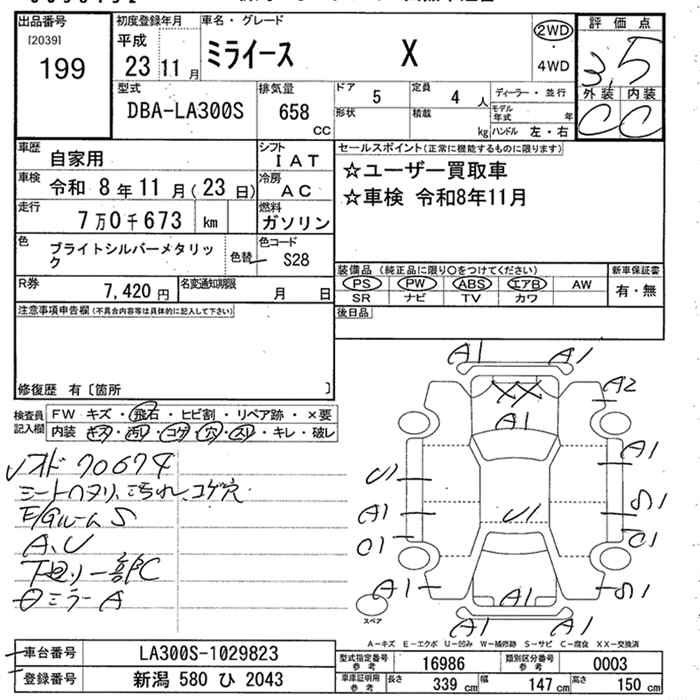 出品番号
[2039]
199
初度登録年月
平成
23 11 月
車名・グレード
ミライース X
2WD
・
4WD
評価点
3.5
外装 内装
C C
型式
DBA-LA300S
排気量
658
CC
ドア 5
定員 4 人
形状
積載 kg
ディーラー・並行
モデル年式 年
ハンドル 左・右
車歴 自家用
シフト IAT
車検 令和 8 年 11 月 (23 日)
冷房 AC
走行 7 万 0 千 673 km
燃料 ガソリン
色 ブライトシルバーメタリック
色替
色コード S28
R券 7,420 円
名変通知期限 月 日
セールスポイント(正常に機能するものに限ります)
☆ユーザー買取車
☆車検 令和8年11月
装備品 (純正品に限り○をつけてください)
新車保証書
PS PW ABS エアB AW
有・無
SR ナビ TV カワ
後日品
注意事項申告欄(不具合内容等は具体的に記入して下さい)
修復歴 有〔箇所 〕
検査員記入欄
FW キズ・飛石・ヒビ割・リペア跡・×要
内装 キズ・汚レ・コゲ・穴・スレ・キレ・破レ
70674
シートヘタリ、汚れ、コゲ穴
E/GルームS
A、U
下廻り一部C
ミラーA
A1 A1
XX
A2
A1
A1
U1
A1
U1
S1
C1
C1
A1
A1
S1
A1 A1
スペア
A-キズ E-エクボ U-凹み W-補修跡 S-サビ C-腐食 XX-交換済
車台番号 LA300S-1029823
登録番号 新潟 580 ひ 2043
型式指定番号 参考 16986
類別区分番号 参考 0003
車庫証明用 参考
長さ 339 cm
幅 147 cm
高さ 150 cm